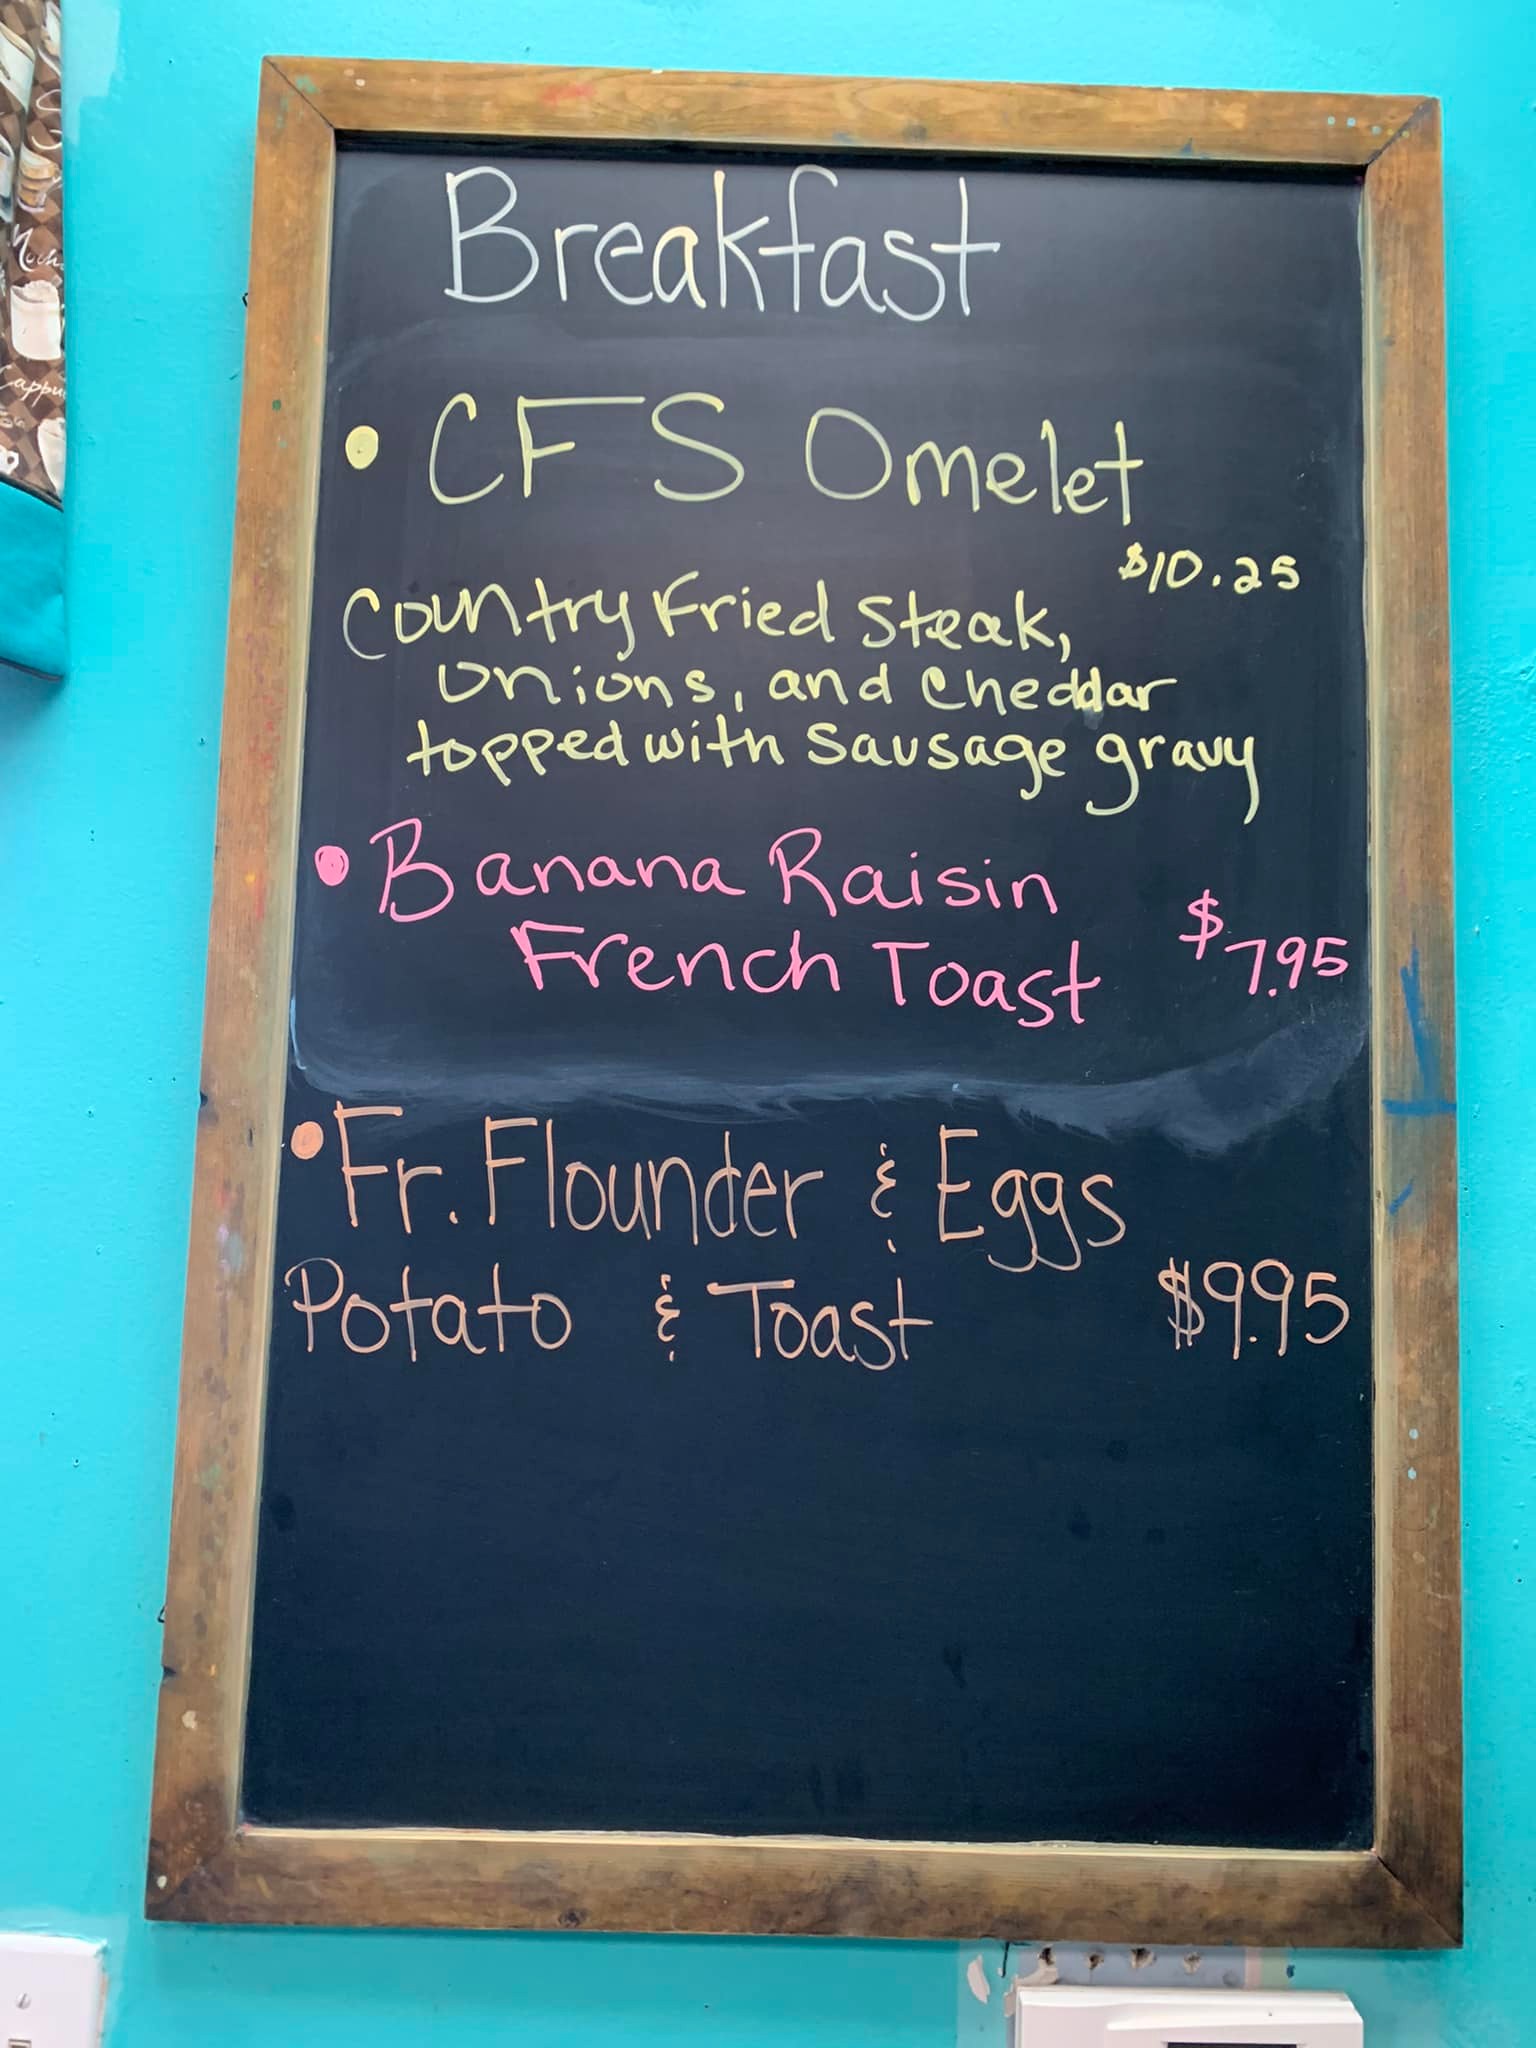 Breakfast
• CFS Omelet
$10.25
Country Fried Steak,
Onions, and Cheddar
topped with Sausage gravy
• Banana Raisin
French Toast $7.95
• Fr. Flounder & Eggs
Potato & Toast $9.95
Mocha
Cappu